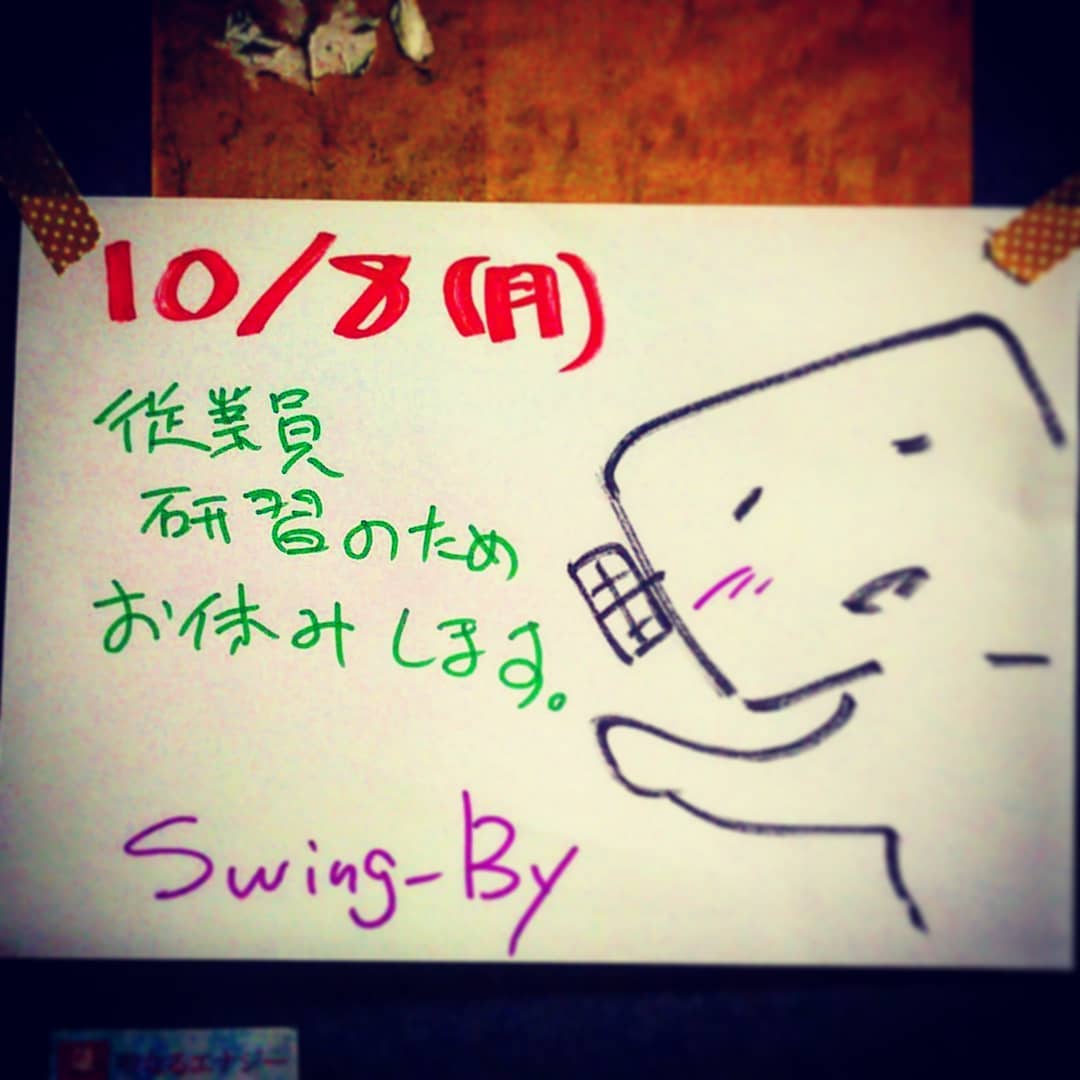 10/8(月)
従業員
研習のため
お休みします。
Swing-By
エナジー